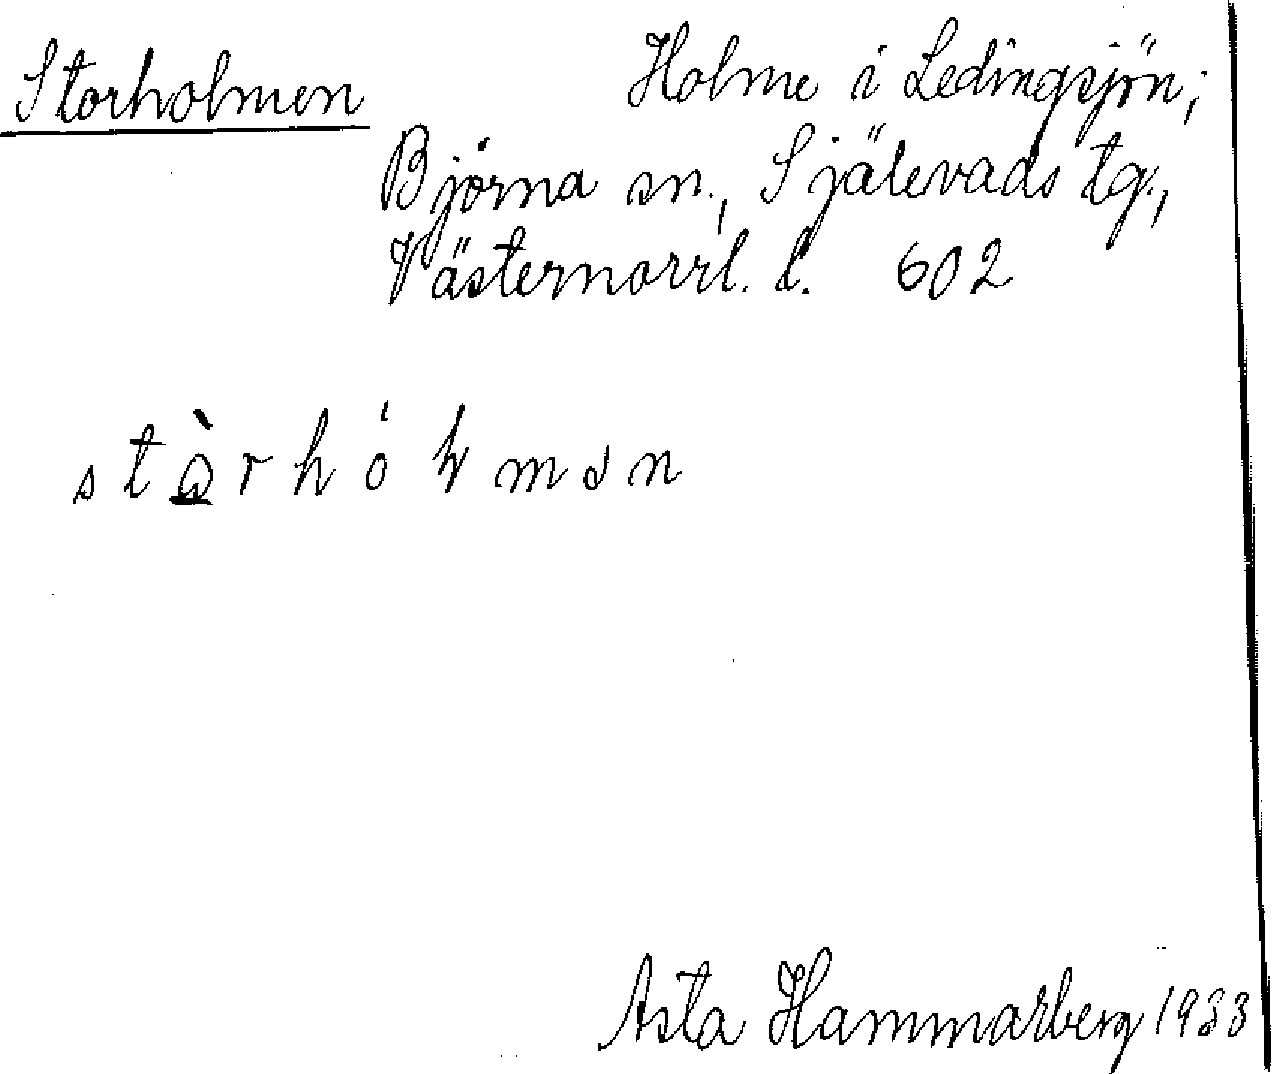 Storholmen
Holme i Ledingsjön;
Björna sn., Själevads tg.,
Västernorrl. l. 602
Asta Hammarberg 1933